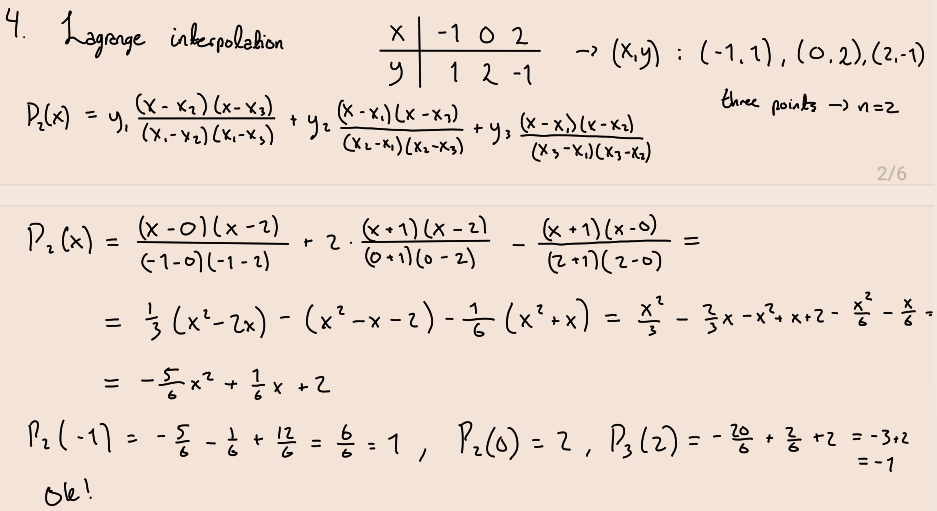 4. Lagrange interpolation
x | -1 0 2
y | 1 2 -1
→ (x,y) : (-1,1), (0,2), (2,-1)
three points → n=2
P₂(x) = y₁ (x-x₂)(x-x₃)/(x₁-x₂)(x₁-x₃) + y₂ (x-x₁)(x-x₃)/(x₂-x₁)(x₂-x₃) + y₃ (x-x₁)(x-x₂)/(x₃-x₁)(x₃-x₂)
2/6
P₂(x) = (x-0)(x-2)/(-1-0)(-1-2) + 2 · (x+1)(x-2)/(0+1)(0-2) - (x+1)(x-0)/(2+1)(2-0) =
= 1/3 (x²-2x) - (x²-x-2) - 1/6 (x²+x) = x²/3 - 2/3 x - x² + x + 2 - x²/6 - x/6 =
= -5/6 x² + 1/6 x + 2
P₂(-1) = -5/6 - 1/6 + 12/6 = 6/6 = 1 , P₂(0) = 2 , P₃(2) = -20/6 + 2/6 + 2 = -3+2
= -1
Ok!